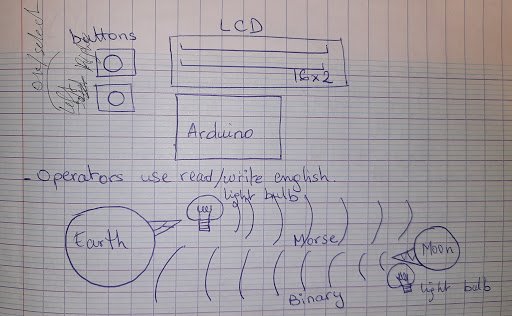 LCD
buttons
one/select
16x2
Arduino
- Operators use read/write english.
light bulb
Earth
Morse
Moon
Binary
light bulb